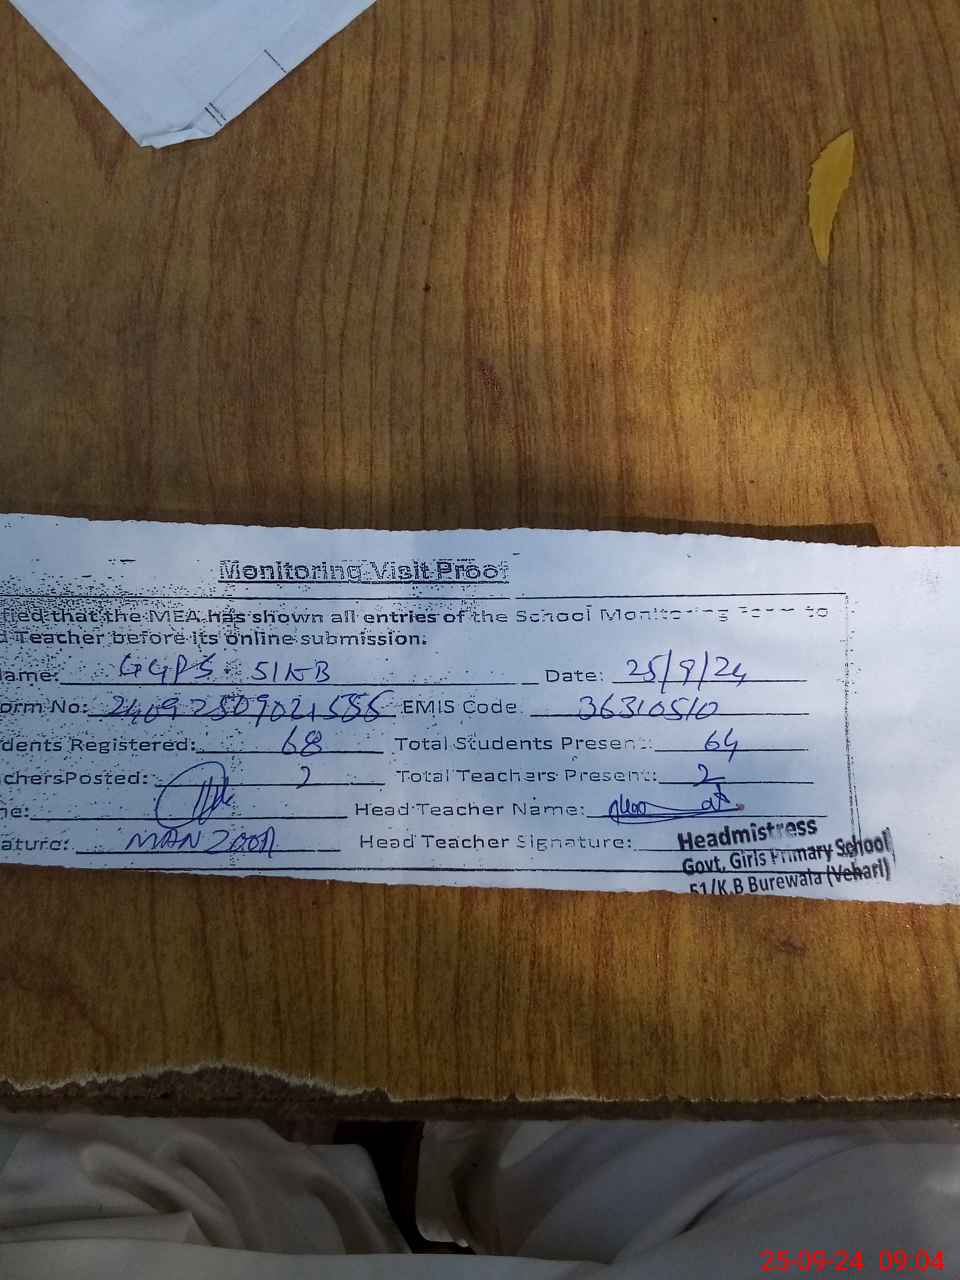 Monitoring Visit Proof
that the MEA has shown all entries of the School Monitoring Form to
Teacher before its online submission.
ame: GGPS 51KB Date: 25/9/24
orm No: EMIS Code 36310510
dents Registered: 68 Total Students Present: 64
achersPosted: 2 Total Teachers Present: 2
ne: Head Teacher Name:
ature: MANZOOR Head Teacher Signature:
Headmistress
Govt, Girls Primary School
51/K.B Burewala (Vehari)
25-09-24 09:04